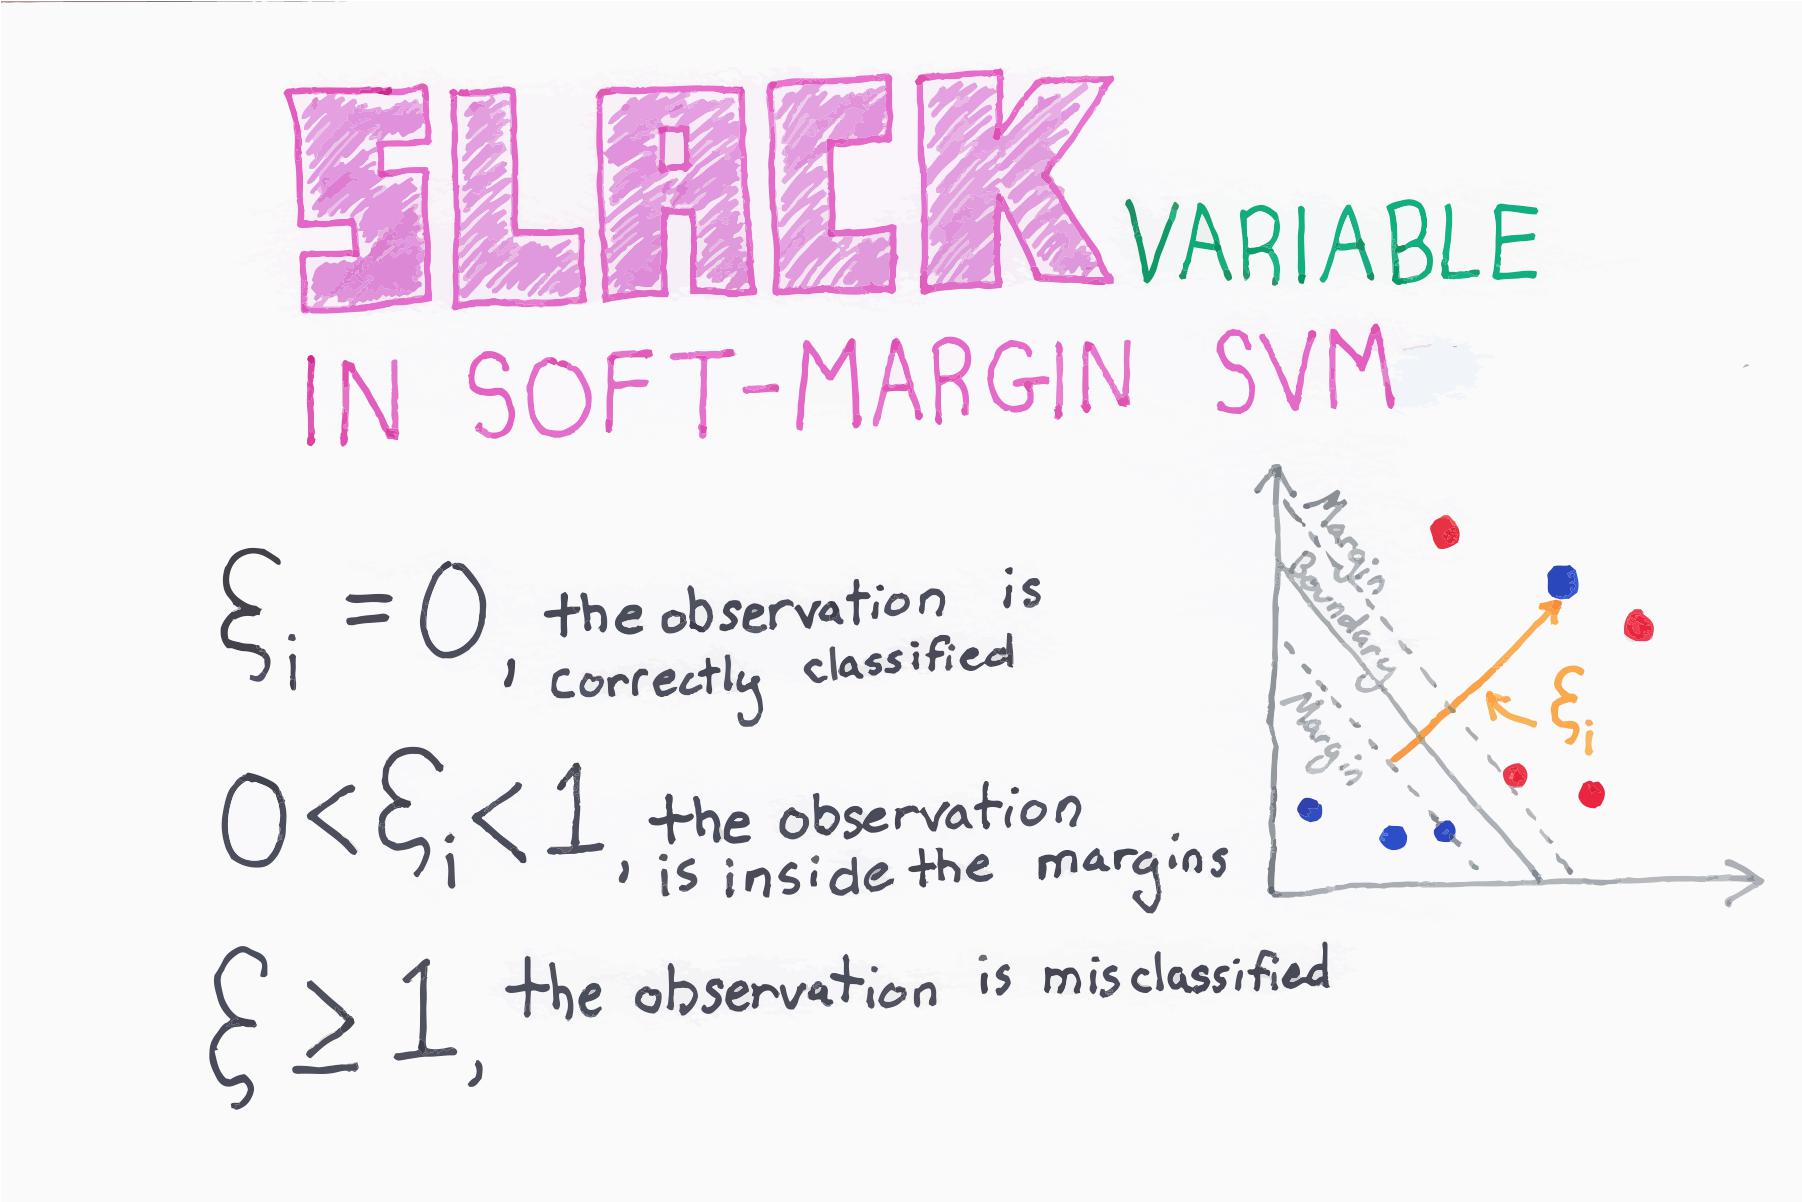 SLACK VARIABLE
IN SOFT-MARGIN SVM
ξi = 0, the observation is
correctly classified
0 < ξi < 1, the observation
is inside the margins
ξ ≥ 1, the observation is misclassified
Margin
Boundary
Margin
ξi